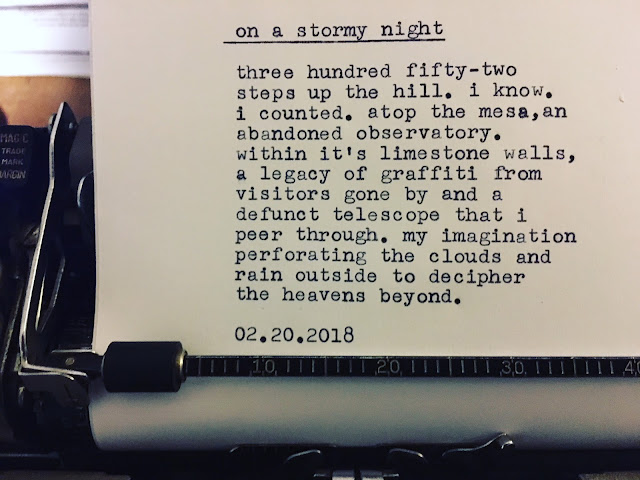 on a stormy night
three hundred fifty-two
steps up the hill. i know.
i counted. atop the mesa,an
abandoned observatory.
within it's limestone walls,
a legacy of graffiti from
visitors gone by and a
defunct telescope that i
peer through. my imagination
perforating the clouds and
rain outside to decipher
the heavens beyond.
02.20.2018
MAGIC
TRADE
MARK
MARGIN
10 20 30 40